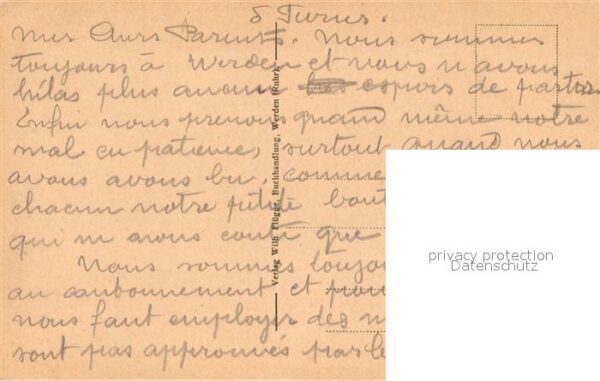 5 Furus.
Mes Chers Parents. Nous sommes
toujours à Werden et nous n'avons
hélas plus aucun espoirs de partir.
Enfin nous prenons quand même notre
mal en patience, surtout quand nous
avons avons bu, comme
chacun notre petite bout
qui n avons conté que
Nous sommes toujou
au cantonnement et pour
nous faut employer des m
sont pas approuvés par le
Verlag Wilh. Flügge, Buchhandlung, Werden (Ruhr).
privacy protection
Datenschutz